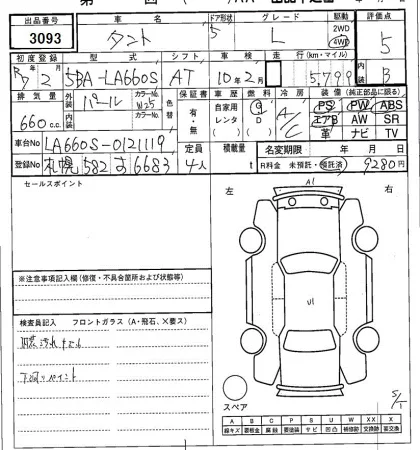 出品番号 車名 ドア形状 グレード 駆動 評価点
3093 タント 5 L 2WD 4WD 5
初度登録 型式 シフト 車検 走行(km・マイル)
R 2 5BA-LA660S AT 10年2月 5,799 B
排気量 外装 パール カラーNo. W25 色替 保証書 車歴 燃料 冷房 装備(純正部品に限る)
内装 カラーNo. 有・無 自家用 レンタ G D A/C PS PW ABS
660c.c. エアB AW SR
革 ナビ TV
車台No LA660S-0121119 定員 積載量 名変期限 年 月 日
登録No 札幌 582 す 6683 4人 t R料金 未預託・預託済 9280円
セールスポイント
左 右
A1
※注意事項記入欄(修復・不具合箇所および状態等)
U1
検査員記入 フロントガラス(A・飛石、X要ス)
スペア
5/1
A B C P S U W X XX
線キズ 要板金 腐蝕 要塗装 サビ 凹凸 補修跡 交換跡 要交換